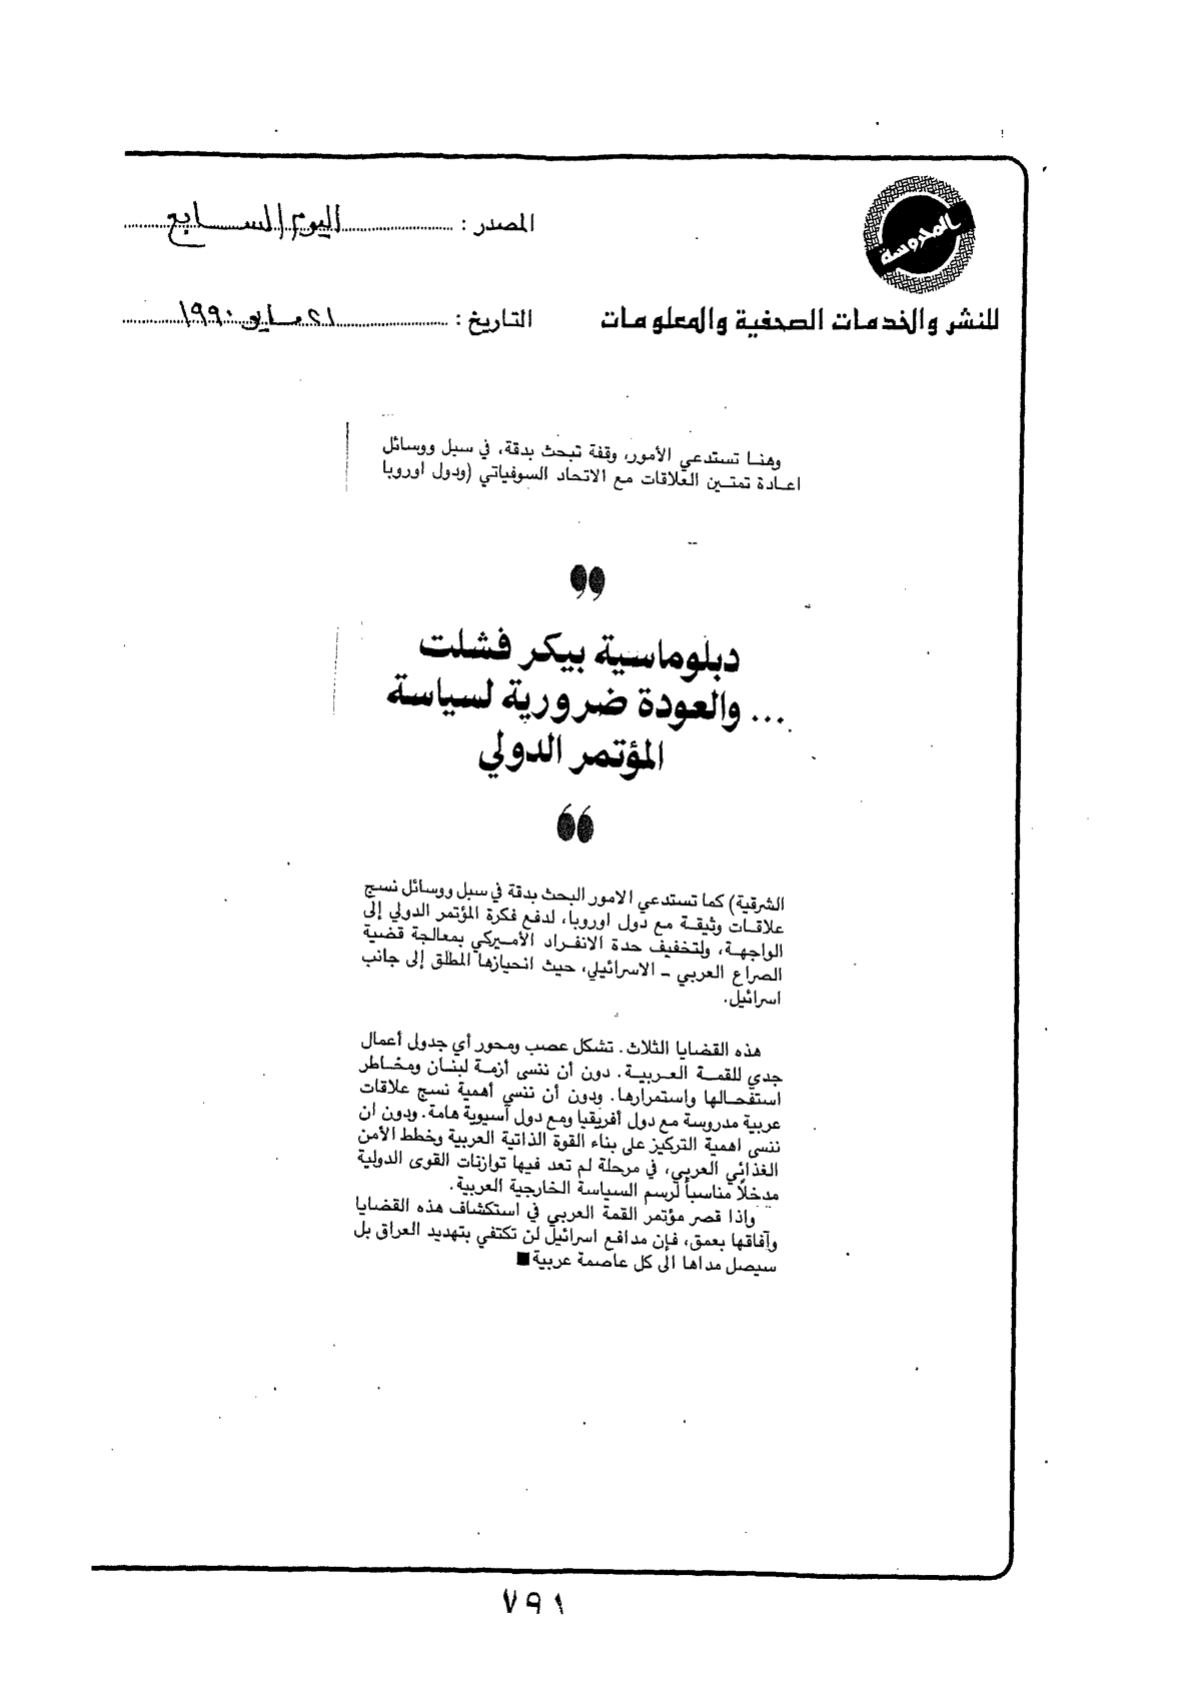 المحروسة
المصدر : اليوم السابع
للنشر والخدمات الصحفية والمعلومات
التاريخ : ٢١ مايو ١٩٩٠
وهنا تستدعي الأمور، وقفة تبحث بدقة، في سبل ووسائل
اعادة تمتين العلاقات مع الاتحاد السوفياتي (ودول اوروبا
دبلوماسية بيكر فشلت
... والعودة ضرورية لسياسة
المؤتمر الدولي
الشرقية) كما تستدعي الامور البحث بدقة في سبل ووسائل نسج
علاقات وثيقة مع دول اوروبا، لدفع فكرة المؤتمر الدولي إلى
الواجهة، ولتخفيف حدة الانفراد الأميركي بمعالجة قضية
الصراع العربي ـ الاسرائيلي، حيث انحيازها المطلق إلى جانب
اسرائيل.
هذه القضايا الثلاث. تشكل عصب ومحور أي جدول أعمال
جدي للقمة العربية. دون أن ننسى أزمة لبنان ومخاطر
استفحالها واستمرارها. ودون أن ننسى أهمية نسج علاقات
عربية مدروسة مع دول أفريقيا ومع دول آسيوية هامة. ودون ان
ننسى اهمية التركيز على بناء القوة الذاتية العربية وخطط الأمن
الغذائي العربي، في مرحلة لم تعد فيها توازنات القوى الدولية
مدخلاً مناسباً لرسم السياسة الخارجية العربية.
واذا قصر مؤتمر القمة العربي في استكشاف هذه القضايا
وآفاقها بعمق، فإن مدافع اسرائيل لن تكتفي بتهديد العراق بل
سيصل مداها الى كل عاصمة عربية■
٧٩١